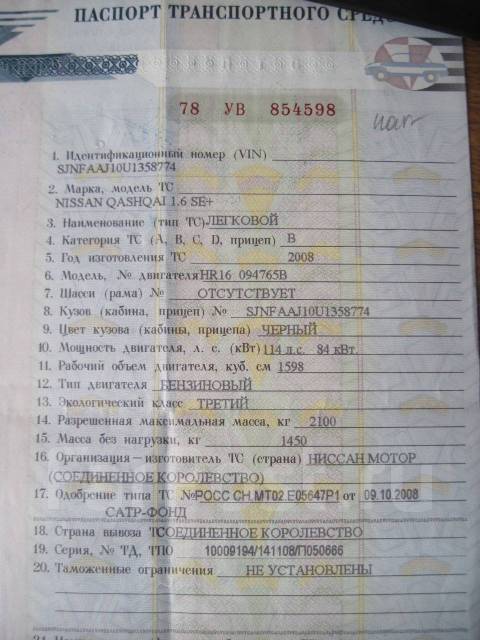 ПАСПОРТ ТРАНСПОРТНОГО
78 УВ 854598
1. Идентификационный номер (VIN)
SJNFAAJ10U1358774
2. Марка, модель ТС
NISSAN QASHQAI 1.6 SE+
3. Наименование (тип ТС) ЛЕГКОВОЙ
4. Категория ТС (A, B, C, D, прицеп) B
5. Год изготовления ТС 2008
6. Модель, № двигателя HR16 094765B
7. Шасси (рама) № ОТСУТСТВУЕТ
8. Кузов (кабина, прицеп) № SJNFAAJ10U1358774
9. Цвет кузова (кабины, прицепа) ЧЕРНЫЙ
10. Мощность двигателя, л. с. (кВт) 114 л.с. 84 кВт.
11. Рабочий объем двигателя, куб. см 1598
12. Тип двигателя БЕНЗИНОВЫЙ
13. Экологический класс ТРЕТИЙ
14. Разрешенная максимальная масса, кг 2100
15. Масса без нагрузки, кг 1450
16. Организация – изготовитель ТС (страна) НИССАН МОТОР
(СОЕДИНЕННОЕ КОРОЛЕВСТВО)
17. Одобрение типа ТС № РОСС CH.MT02.E05647P1 от 09.10.2008
САТР-ФОНД
18. Страна вывоза ТС СОЕДИНЕННОЕ КОРОЛЕВСТВО
19. Серия, № ТД, ТПО 10009194/141108/П050666
20. Таможенные ограничения НЕ УСТАНОВЛЕНЫ